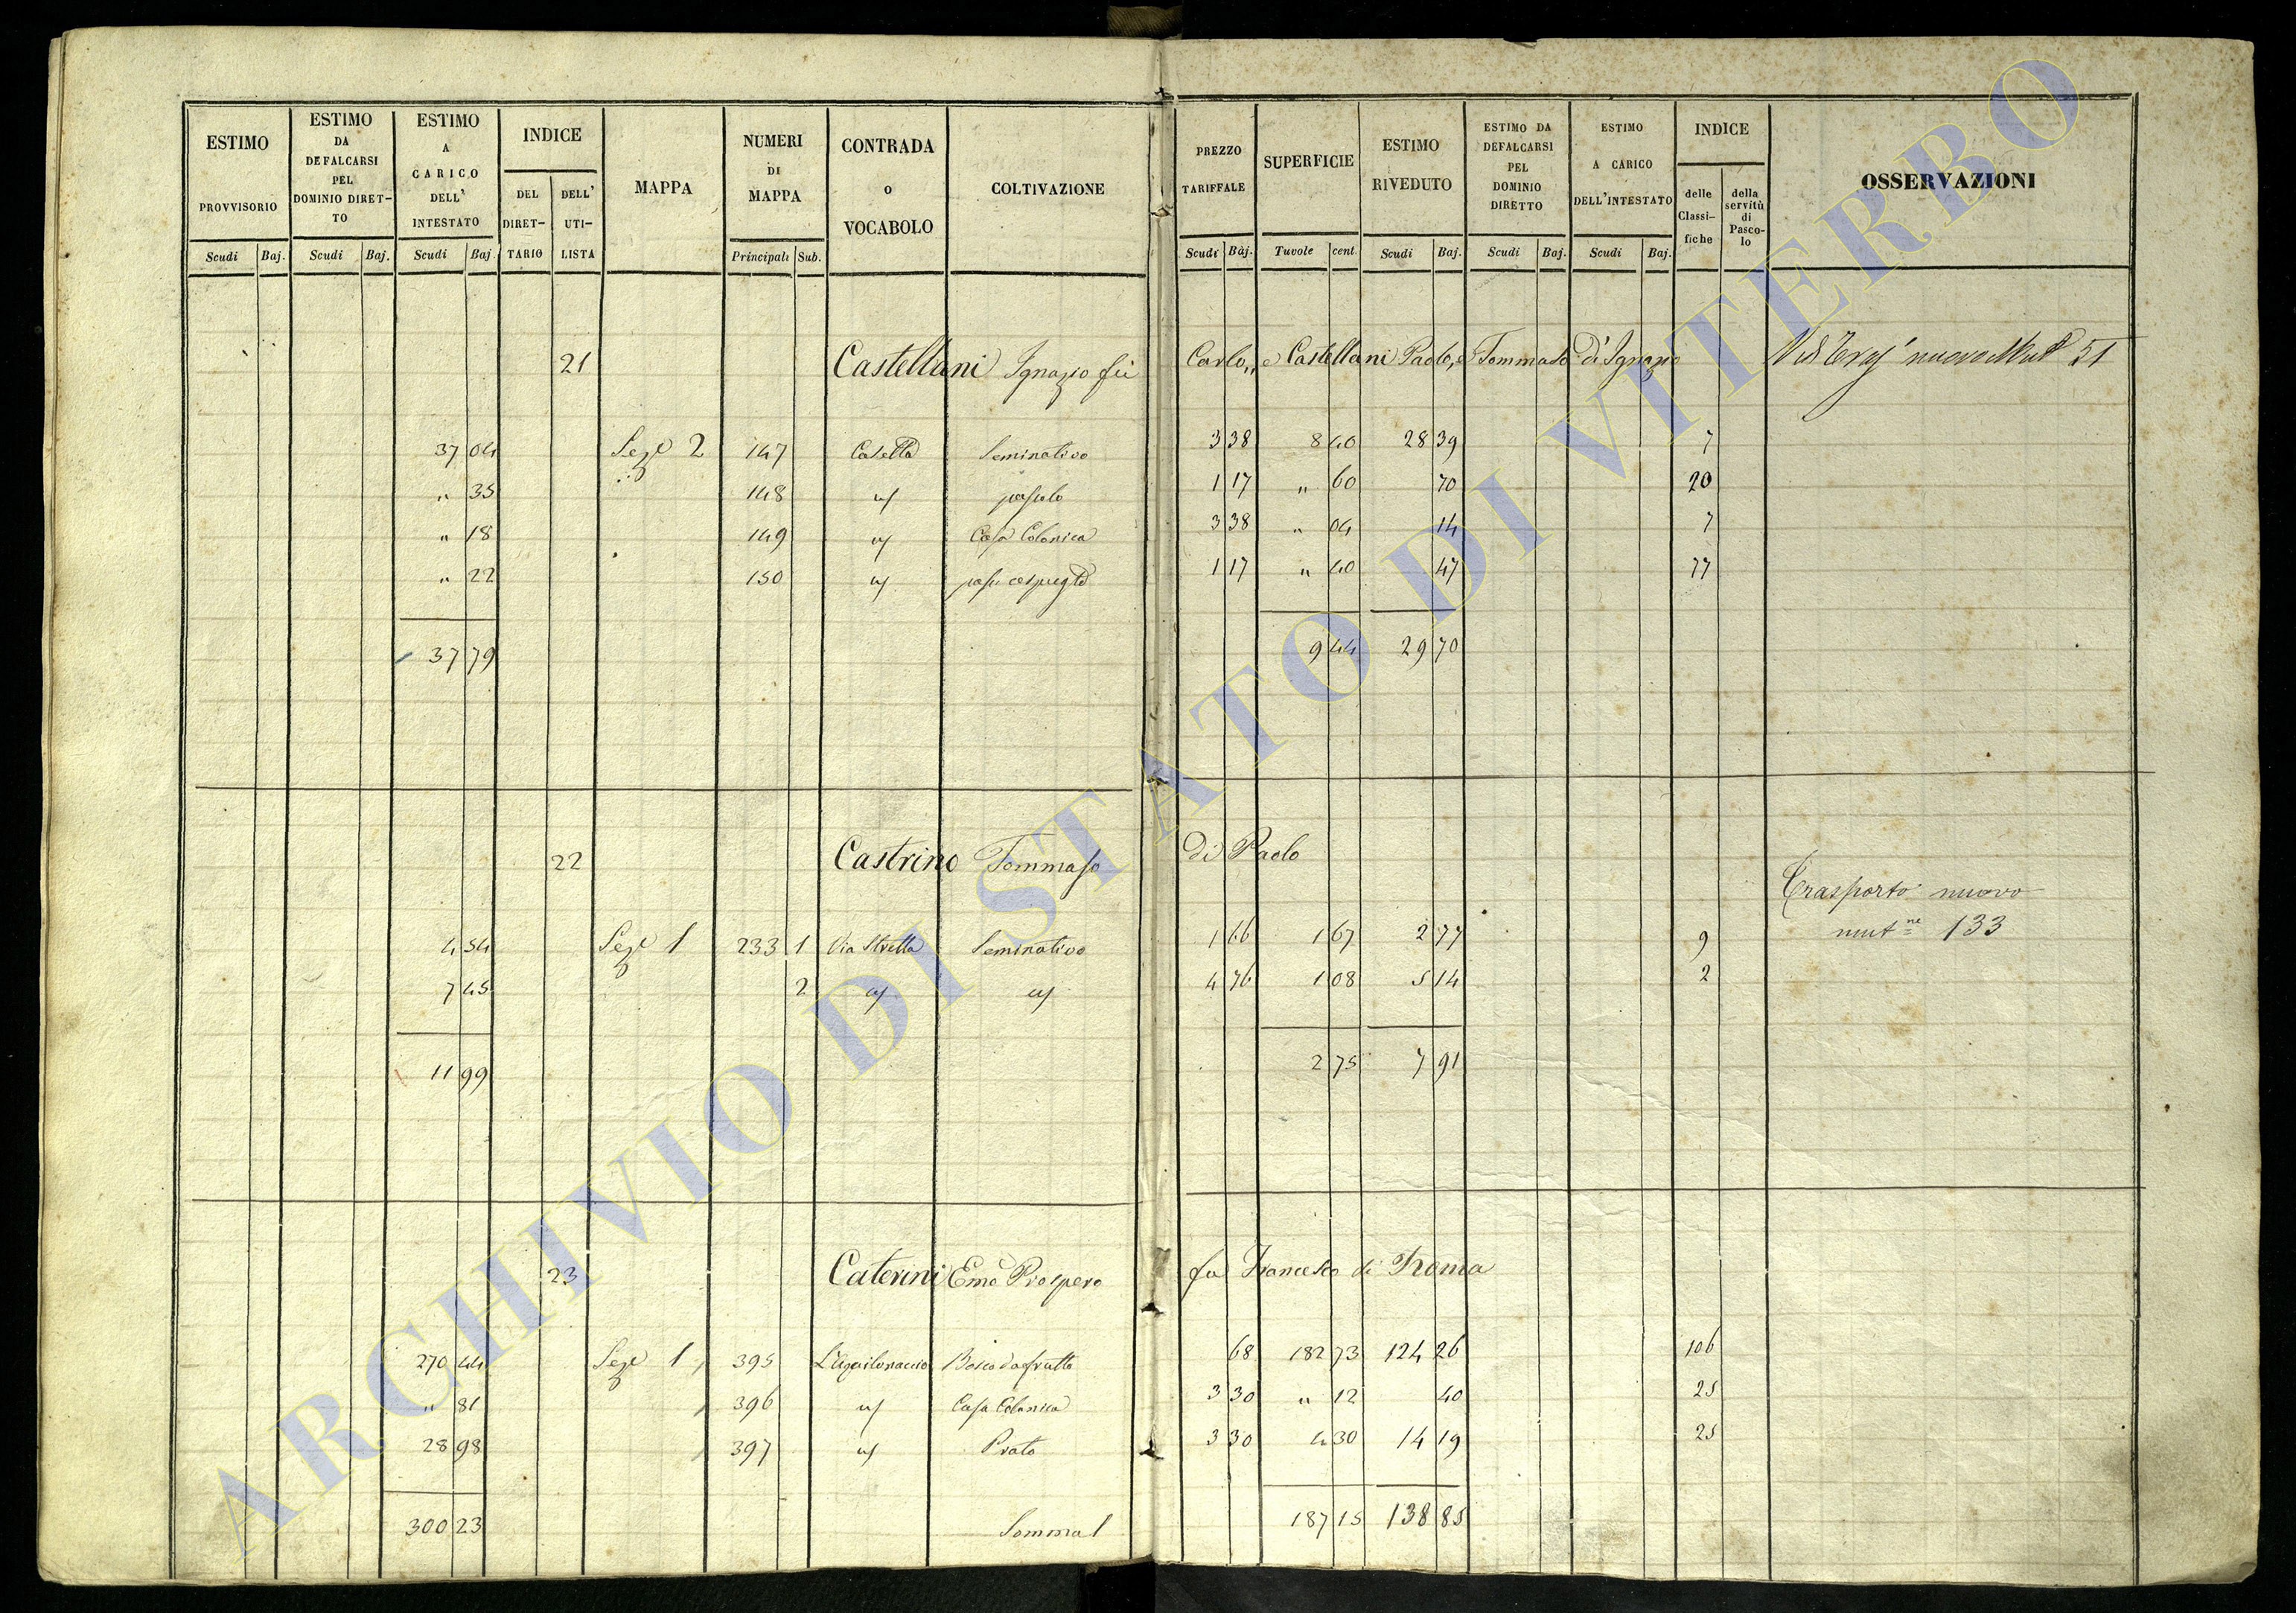 ESTIMO PROVVISORIO Scudi Baj.
ESTIMO DA DEFALCARSI PEL DOMINIO DIRET-TO Scudi Baj.
ESTIMO A CARICO DELL' INTESTATO Scudi Baj.
INDICE DEL DIRET-TARIO DELL' UTI-LISTA
MAPPA
NUMERI DI MAPPA Principali Sub.
CONTRADA o VOCABOLO
COLTIVAZIONE
PREZZO TARIFFALE Scudi Baj.
SUPERFICIE Tavole cent.
ESTIMO RIVEDUTO Scudi Baj.
ESTIMO DA DEFALCARSI PEL DOMINIO DIRETTO Scudi Baj.
ESTIMO A CARICO DELL'INTESTATO Scudi Baj.
INDICE delle Classi-fiche della servitù di Pasco-lo
OSSERVAZIONI
21 Castellani Ignazio fù Carlo,, e Castellani Paolo, e Tommaso di Ignazio nuovo 51
37 04 Seze 2 147 Casetta Seminativo 3 38 8 40 28 39 7
" 35 148 " pascolo 1 17 " 60 70 20
" 18 149 " Casa Colonica 3 38 " 04 14 7
" 22 150 " 1 17 " 40 47 77
37 79 9 44 29 70
22 Castrino Tommaso di Paolo
Trasporto nuovo
mut.ne 133
4 54 Seze 1 233 1 Via Stretta Seminativo 1 66 1 67 2 77 9
7 45 2 " " 4 76 1 08 5 14 2
11 99 2 75 7 91
23 Caterini Emo Prospero fu Francesco di Roma
270 44 Seze 1 395 L'Aquilonaccio Bosco da frutto 68 182 73 124 26 106
" 81 396 " Casa Colonica 3 30 " 12 40 25
28 98 397 " Prato 3 30 4 30 14 19 25
300 23 Somma 187 15 138 85
ARCHIVIO DI STATO DI VITERBO